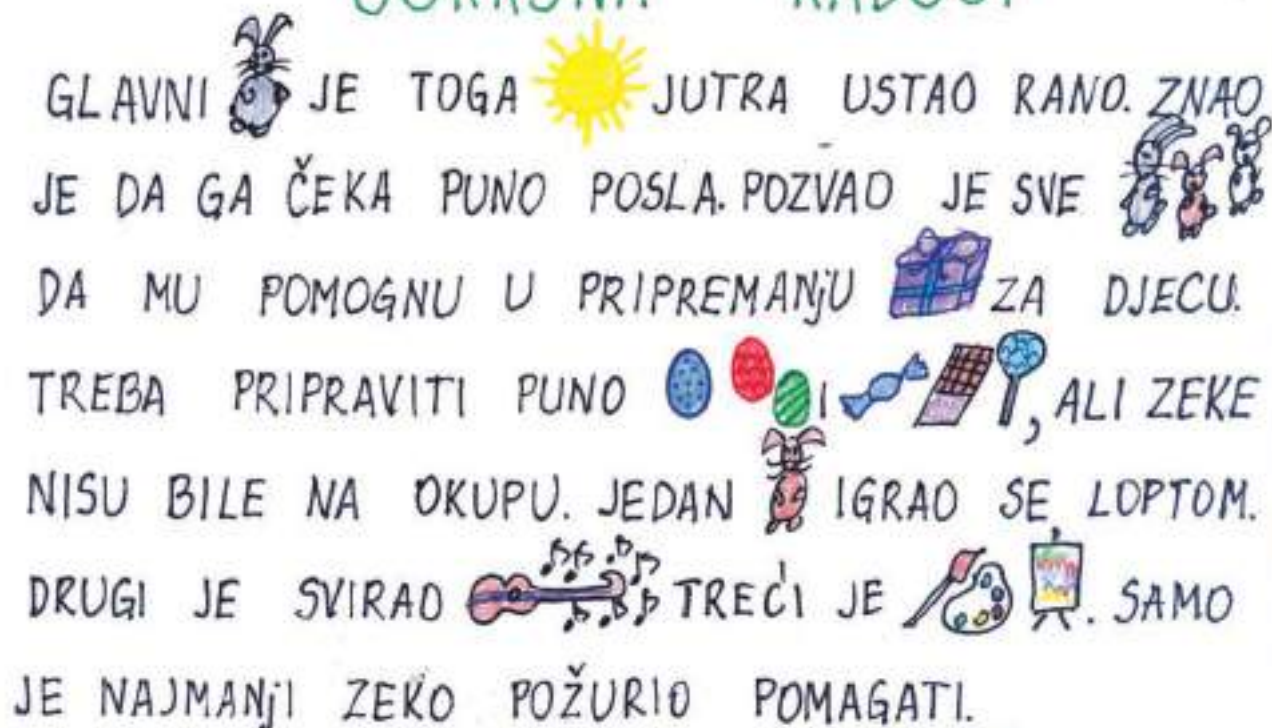 GLAVNI JE TOGA JUTRA USTAO RANO. ZNAO
JE DA GA ČEKA PUNO POSLA. POZVAO JE SVE
DA MU POMOGNU U PRIPREMANjU ZA DJECU.
TREBA PRIPRAVITI PUNO I , ALI ZEKE
NISU BILE NA OKUPU. JEDAN IGRAO SE LOPTOM.
DRUGI JE SVIRAO TREĆI JE . SAMO
JE NAJMANjI ZEKO POŽURIO POMAGATI.